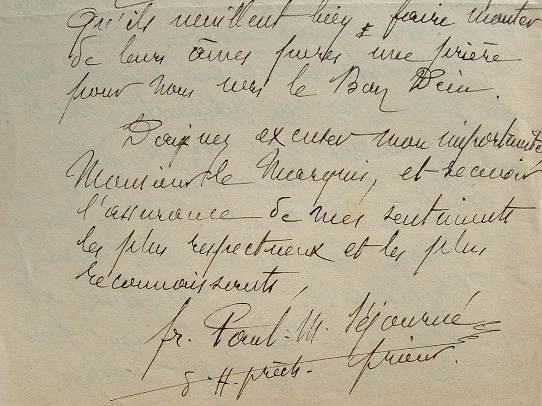 Qu'ils veuillent bien faire monter
de leurs âmes pures une prière
pour nous vers le Bon Dieu.
Daignez excuser mon importunité
Monsieur le Marquis, et recevoir
l'assurance de mes sentiments
les plus respectueux et les plus
reconnaissants,
fr. Paul-M. Séjourné
prêch. prieur.